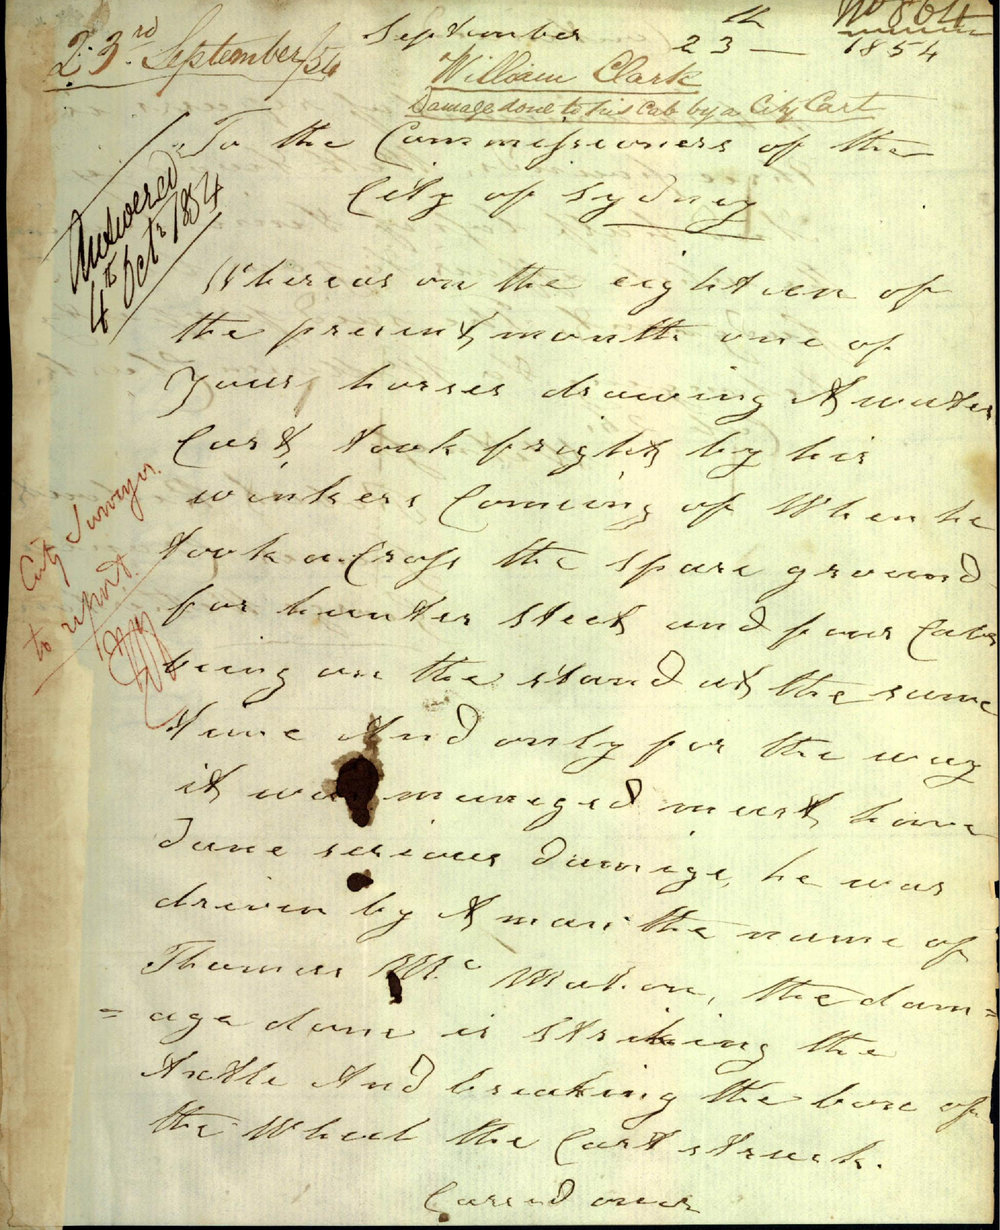 No 864
23rd September/54
September 23th — 1854
William Clark
Damage done to his Cab by a City Cart
To the Commissioners of the
City of Sydney
Answered
4th Octr 1854
Whereas on the eighteen of
the present month one of
Your horses drawing A water
Cart, took fright by his
winkers Coming of When he
took a.Cross the spare ground
for hunter Steet and four Cabs
City Surveyor
to report.
being on the stand at the same
time And only for the way
it was maneged must have
done serious damige, he was
driven by A man the name of
Thomas Mc Mahon, the dam=
=age done is Striking the
Axtle And breaking the boxe of
the Wheel the Cart struck.
Carred over